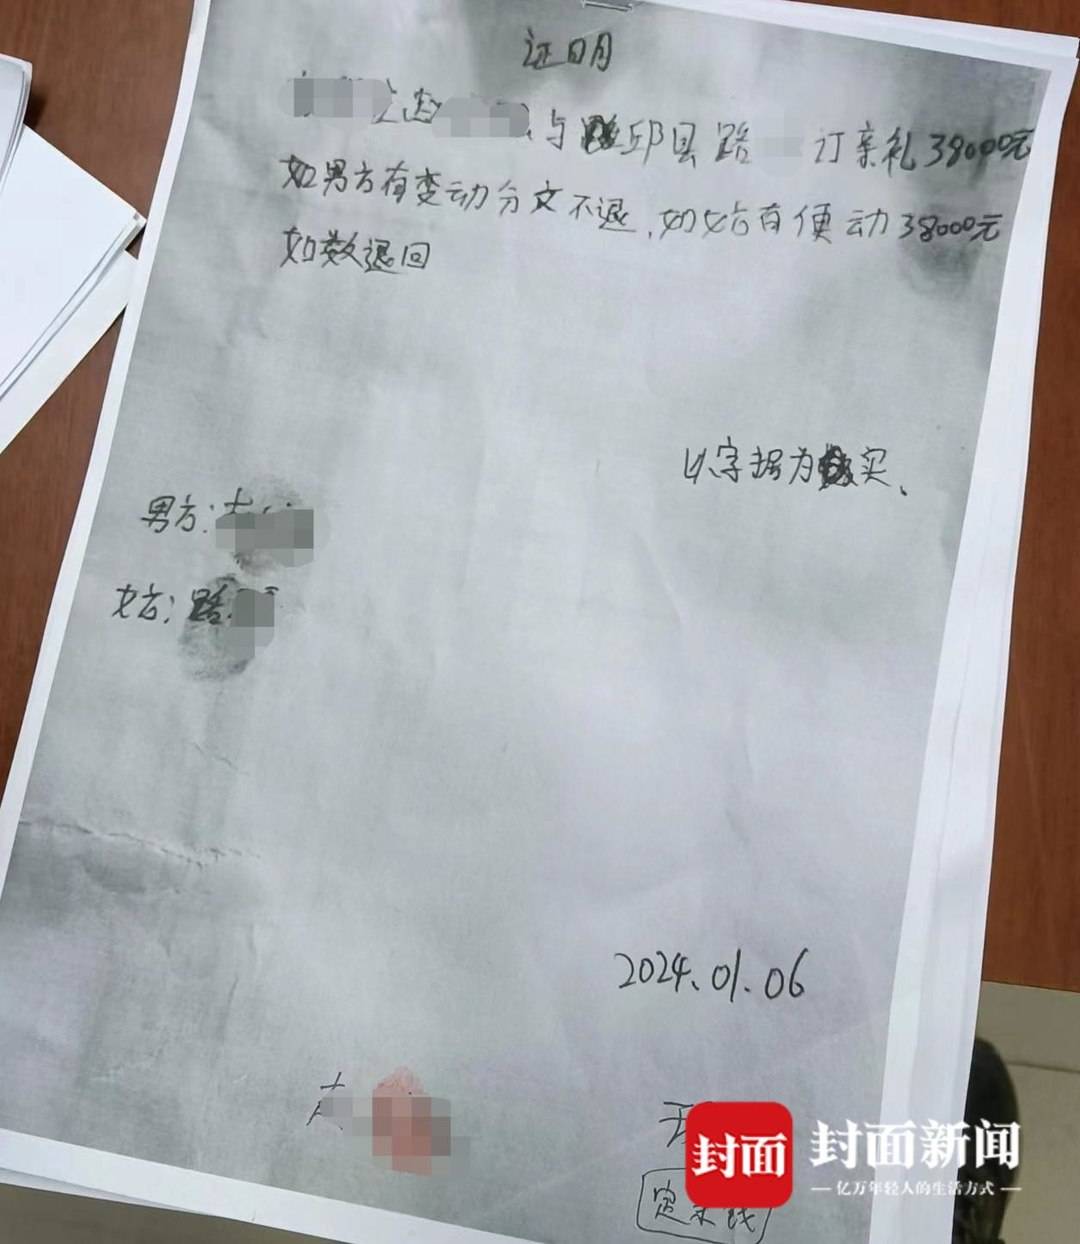 证明
与邱县路 订亲礼38000元
如男方有变动分文不退，如女方有便动38000元
如数退回
以字据为实、
男方：
女方：路
2024.01.06
封面
封面新闻
亿万年轻人的生活方式
定亲钱